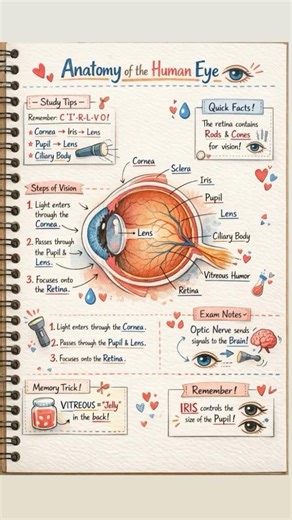 Anatomy of the Human Eye
Study Tips
Remember: C 'I'-R-L-V O!
Cornea → Iris → Lens
Pupil → Lens
Ciliary Body
Quick Facts!
The retina contains
Rods & Cones
for vision!
Cornea
Sclera
Iris
Pupil
Lens
Ciliary Body
Vitreous Humor
Retina
Lens
Steps of Vision
1. Light enters
through the
Cornea.
2. Passes through
the Pupil &
Lens.
3. Focuses onto
the Retina.
1. Light enters through the Cornea.
2. Passes through the Pupil & Lens.
3. Focuses onto the Retina.
Exam Notes
Optic Nerve sends
signals to the Brain!
Memory Trick!
VITREOUS = "Jelly"
in the back!
Remember!
IRIS controls the
size of the Pupil!